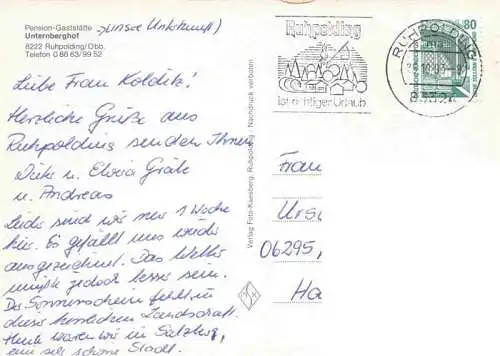 Pension-Gaststätte
Unternberghof
8222 Ruhpolding/Obb.
Telefon 0 86 63/99 52
(unsre Unterkunft)
Liebe Frau Kolditz!
Herzliche Grüße aus
Ruhpolding senden Ihnen
Dirk u. Elvira
u. Andreas
Leider sind wir nur 1 Woche
hier. Es gefällt uns wieder
ausgezeichnet. Das Wetter
müßte jedoch besser sein.
Der Sonnenschein fehlt in
dieser herrlichen Landschaft.
Heute waren wir in Salzburg,
eine sehr schöne Stadt.
Verlag Foto-Kaesberg, Ruhpolding · Nachdruck verboten
Ruhpolding
ist richtiger Urlaub
RUHPOLDING
80
Frau
Urs
06295,
Ha